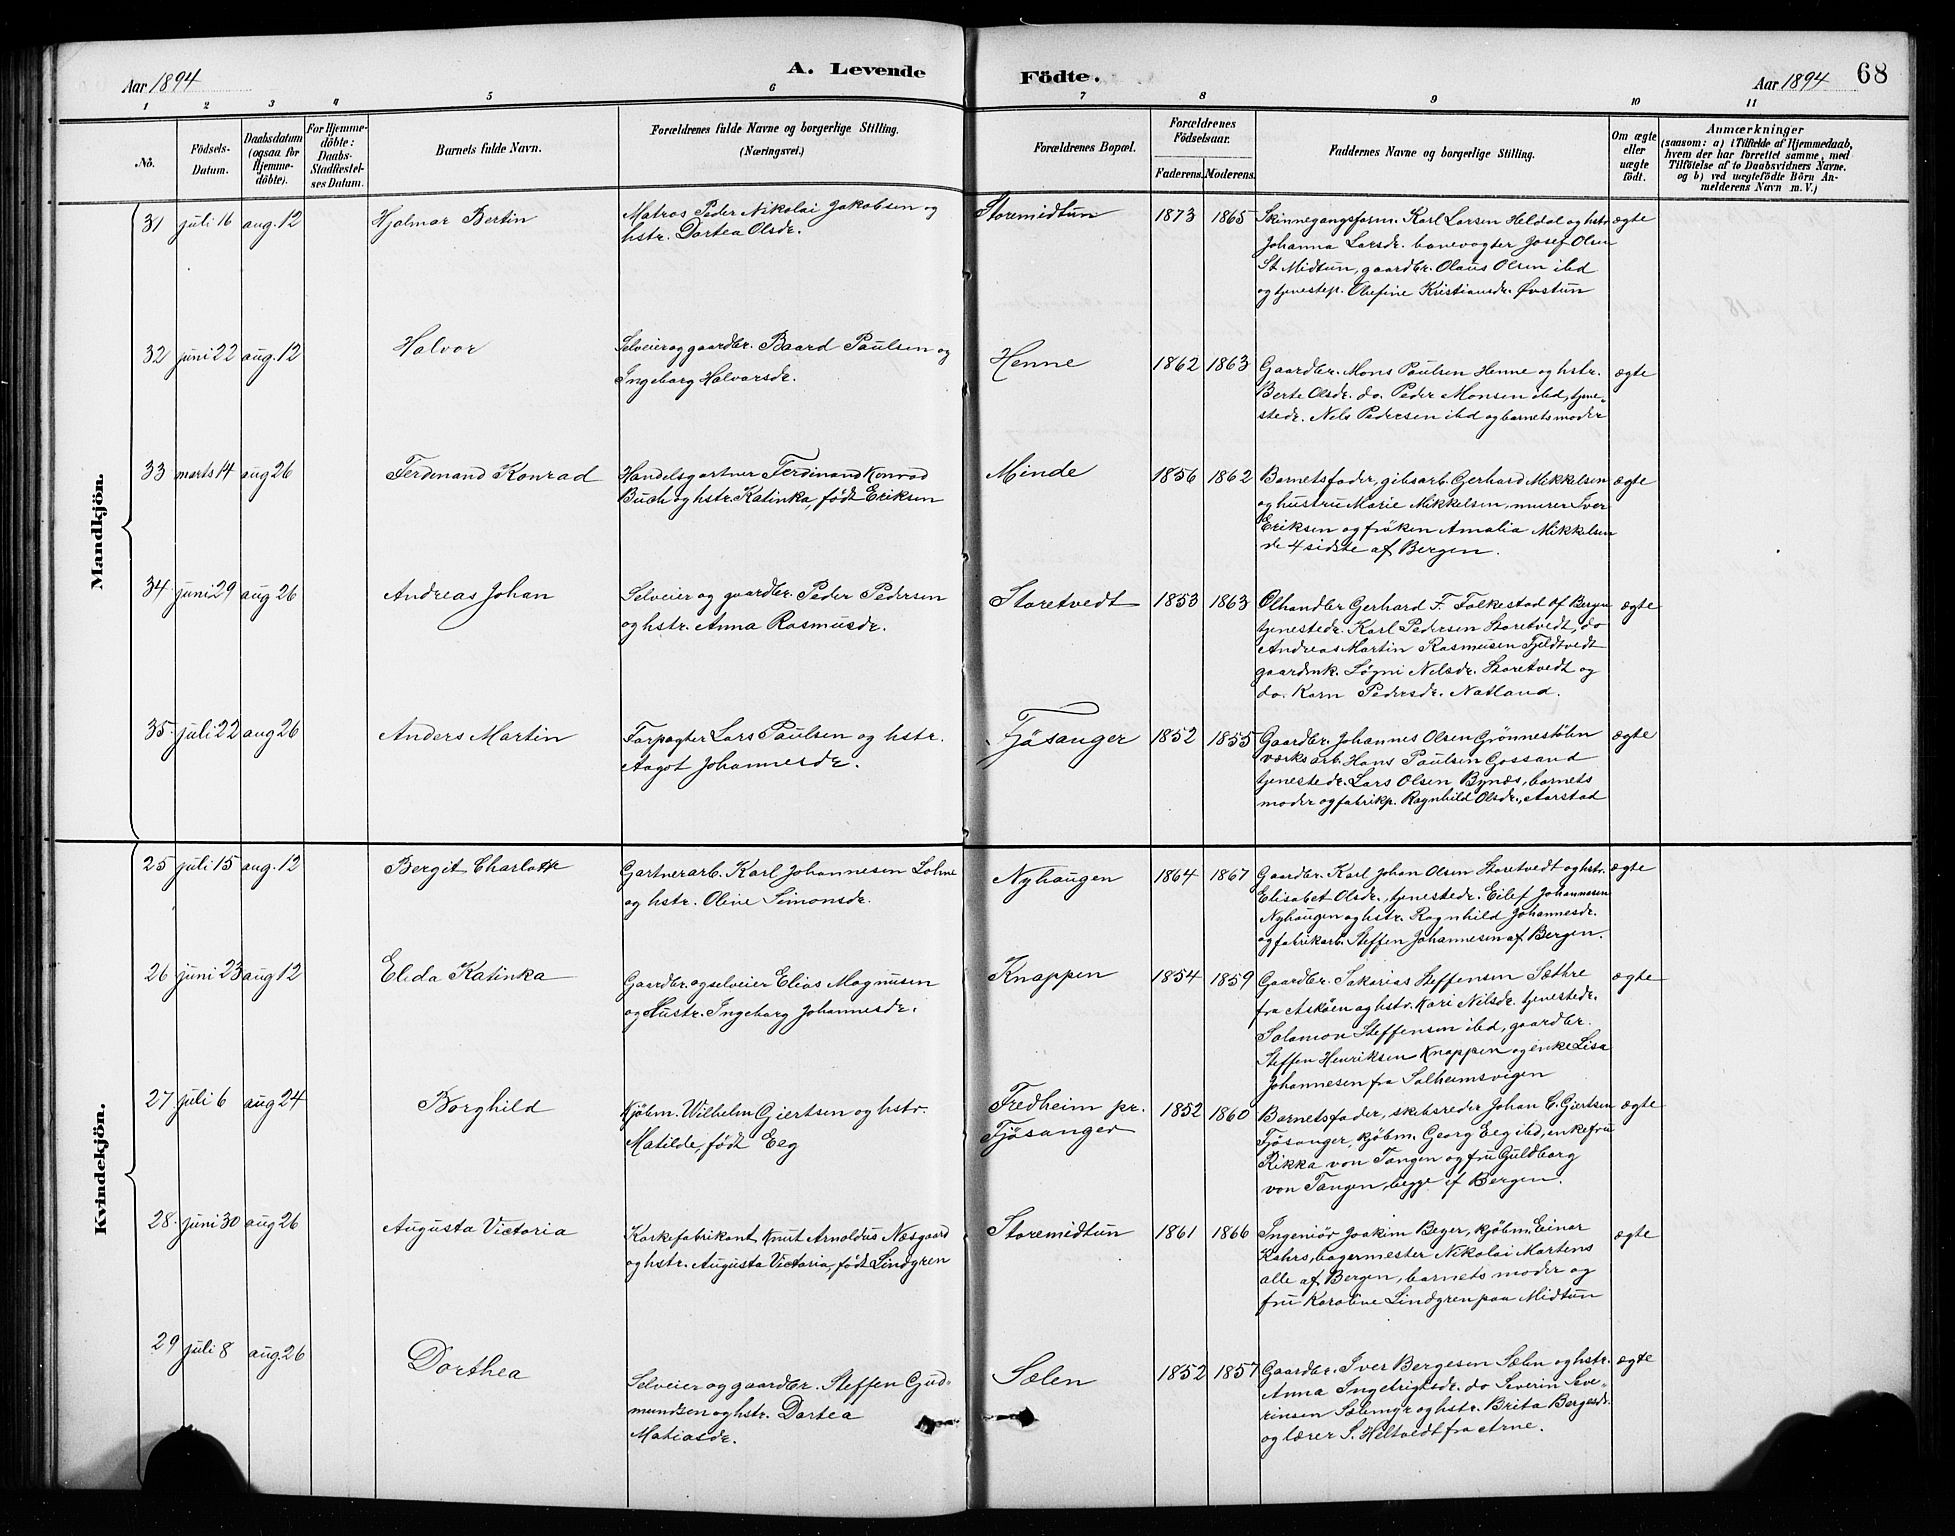 Aar 1894
A. Levende
Födte.
Aar 1894
68
1 2 3 4 5 6 7 8 9 10 11
No.
Födsels-
Datum.
Daabsdatum
(ogsaa for
Hjemme-
döbte).
For Hjemme-
döbte:
Daabs-
Stadfæstel-
ses Datum.
Barnets fulde Navn.
Forældrenes fulde Navne og borgerlige Stilling.
(Næringsvei.)
Forældrenes Bopæl.
Forældrenes
Födselsaar.
Faderens. Moderens.
Faddernes Navne og borgerlige Stilling.
Om ægte
eller
uægte
født.
Anmærkninger
(saasom: a) i Tilfælde af Hjemmedaab,
hvem der har forrettet samme, med
Tilföielse af to Daabsvidners Navne.
og b) ved uægtefödte Börn An-
melderens Navn m. V.)
Mandkjön.
31 juli 16 aug. 12 Hjalmar Bertin
Matros Peder Nikolai Jakobsen og
hstr. Dortea Olsdr.
Storemidtun 1873 1865
Skinnegangsform. Karl Larsen Heldal og hstr
Johanna Larsdr. banevogter Josef Olsen
St Midtun, gaardbr. Olaus Olsen ibd
og tjenestep. Olefine Kristiansdr. Øvstun
ægte
32 juni 22 aug. 12 Halvor
Selveier og gaardbr. Baard Paulsen og
Ingeborg Halvorsdr.
Henne 1862 1863
Gaardbr. Mons Paulsen Henne og hstr.
Berte Olsdr. do. Peder Monsen ibd, tjene-
stedr. Nels Pedersen ibd og barnets moder
ægte
33 marts 14 aug 26 Ferdinand Konrad
Handelsgartner Ferdinand Konrad
Buch og hstr. Katinka, født Eriksen
Minde 1856 1862
Barnets fader, gibsarb. Gerhard Mikkelsen
og hustru Marie Mikkelsen, murer Iver
Eriksen og frøken Amalia Mikkelsen
de 4 sidste af Bergen.
ægte
34 juni 29 aug 26 Andreas Johan
Selveier og gaardbr. Peder Pedersen
og hstr. Anna Rasmusdr.
Storetvedt 1853 1863
Ølhandler Gerhard F. Falkestad af Bergen
tjenestedr. Karl Pedersen Storetvedt, do
Andreas Martin Rasmusen Fjeldtvedt
gaardmk. Søgni Nilsdr. Storetvedt og
do. Karn Pedersdr. Natland.
ægte
35. juli 22 aug 26 Anders Martin
Forpagter Lars Paulsen og hstr.
Aagot Johannesdr.
Fjøsanger 1852 1855
Gaardbr. Johannes Olsen Grønnestølen
værksarb. Hans Paulsen Gossand
tjenestedr. Lars Olsen Bynæs, barnets
moder og fabrikp. Ragnhild Olsdr., Aarstad
ægte
Kvindekjön.
25 juli 15 aug. 12 Bergit Charlotte
Gartnerarb. Karl Johannesen Lohne
og hstr. Oline Simonsdr.
Nyhaugen 1864 1867
Gaardbr. Karl Johan Olsen Storetvedt og hstr.
Elisabet Olsdr., tjenestedr. Eilef Johannesen
Nyhaugen og hstr. Ragnhild Johannesdr.
og fabrikarb. Steffen Johannesen af Bergen.
ægte
26 juni 23 aug 12 Elida Katinka
Gaardbr. og selveier Elias Magnusen
og Hustr. Ingeborg Johannesdr.
Knappen 1854 1859
Gaardbr. Sakarias Steffensen Sæthre
fra Askøen og hstr. Kari Nilsdr. tjenestedr.
Salamon Steffensen ibd, gaardbr.
Steffen Henriksen Knappen og enke Lisa
Johannesen fra Solheimsvigen
ægte
27 juli 6 aug 24 Borghild
Kjøbm. Wilhelm Gjertsen og hstr.
Matilde, født Eeg
Fredheim pr.
Fjøsanger
1852 1860
Barnets fader, skibsreder Johan C. Gjertsen
Fjøsanger, kjøbm. Georg Eeg ibd, enkefru
Rikka von Tangen og fru Guldborg
von Tangen, begge af Bergen.
ægte
28. juni 30 aug 26 Augusta Victoria
Korkefabrikant Knut Arnoldus Næsgaard
og hstr. Augusta Victoria, født Lindgren
Storemidtun 1861 1866
Ingeniør Joakim Beyer, kjøbm. Einar
Kahrs, bagermester Nikolai Martens
alle af Bergen, barnets moder og
fru Karoline Lindgren paa Midtun
ægte
29 juli 8 aug. 26 Dorthea
Selveier og gaardbr. Steffen Gud-
mundsen og hstr. Dortea
Matiasdr.
Sælen 1852 1857
Gaardbr. Iver Bergesen Sælen og hstr.
Anna Ingebrigtsdr. do Severin Seve-
rinsen Sælemyr og hstr. Brita Bergesdr.
og lærer S. Heltvedt fra Arne.
ægte